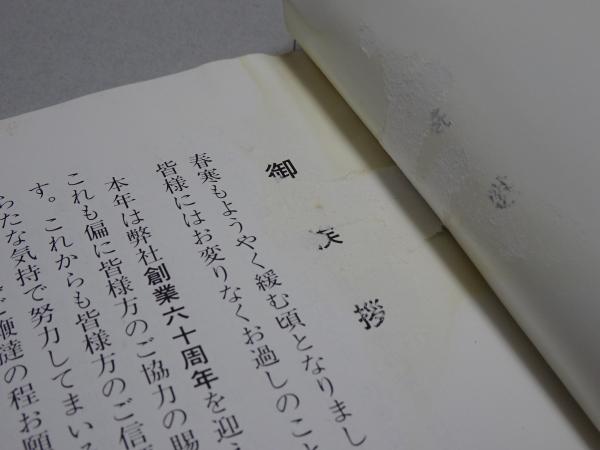 御挨拶
春寒もようやく緩む頃となりまし
皆様にはお変りなくお過しのこと
本年は弊社創業六十周年を迎え
これも偏に皆様方のご協力の賜
す。これからも皆様方のご信
らたな気持で努力してまいる
ご鞭撻の程お願